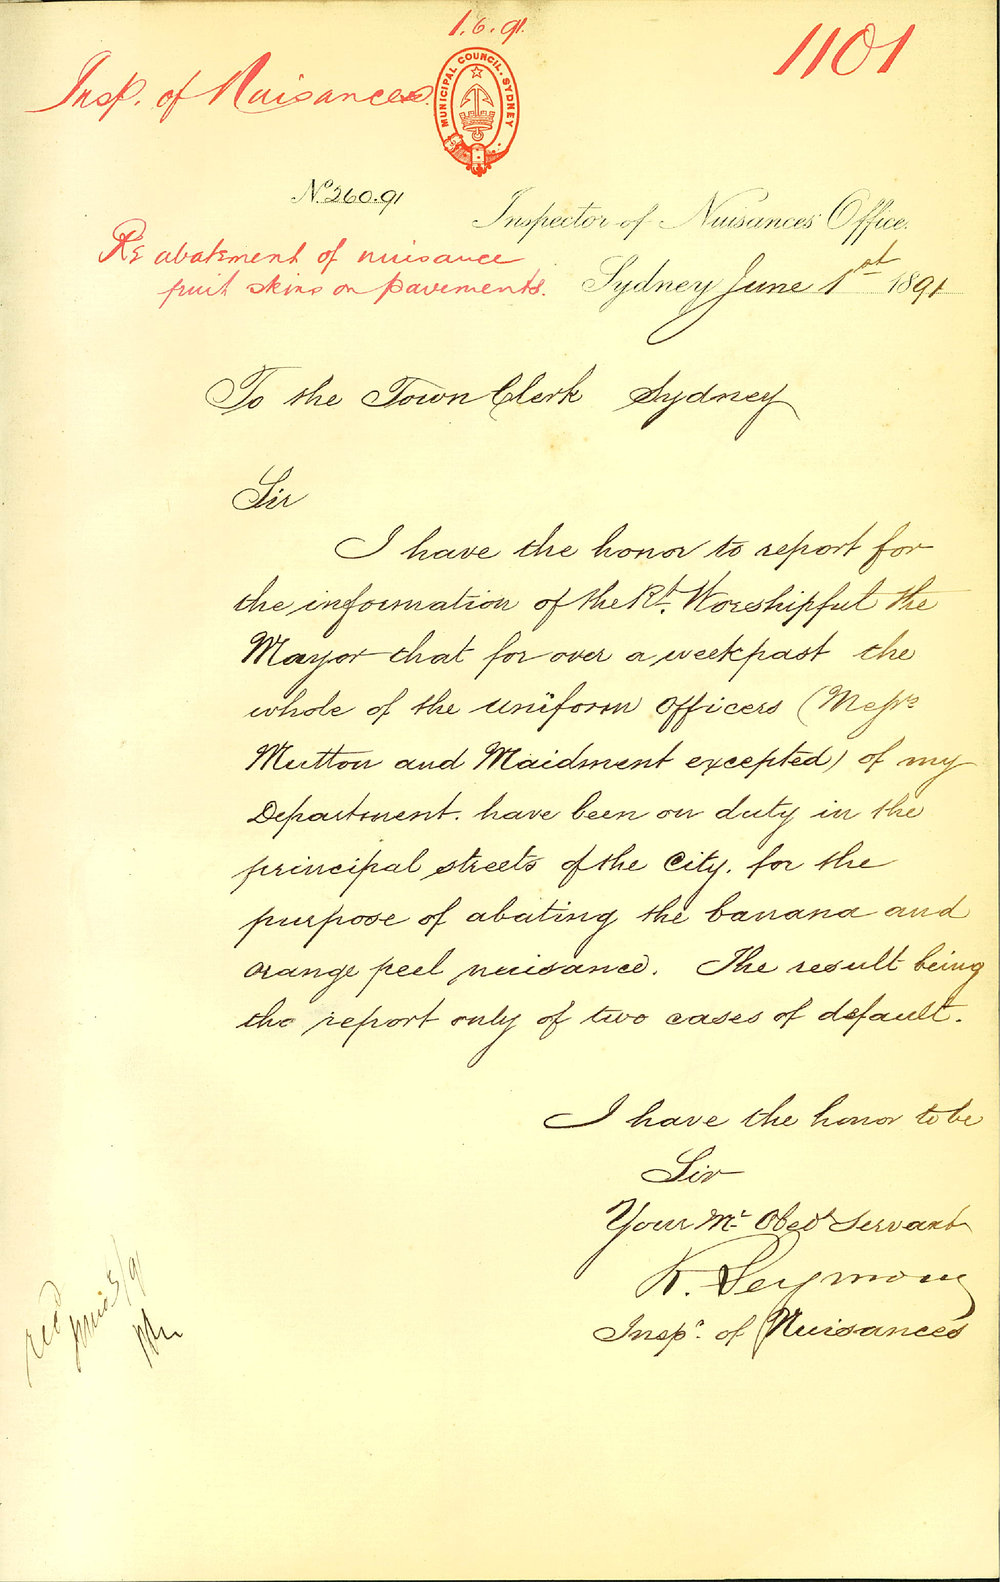 1.6.91.
1101
Insp. of Nuisances.
MUNICIPAL COUNCIL. SYDNEY
No. 260.91
Inspector of Nuisances Office.
Re abatement of nuisance
fruit skins on pavements.
Sydney June 1st 1891
To the Town Clerk Sydney
Sir
I have the honor to report for
the information of the Rt. Worshipful the
Mayor that for over a week past the
whole of the uniform officers (Messrs
Mutton and Maidment excepted) of my
Department. have been on duty in the
principal streets of the City. for the
purpose of abating the banana and
orange peel nuisance. The result being
the report only of two cases of default.
I have the honor to be
Sir
Your Mt Obedt Servant
R. Seymour
Inspr of Nuisances
recd